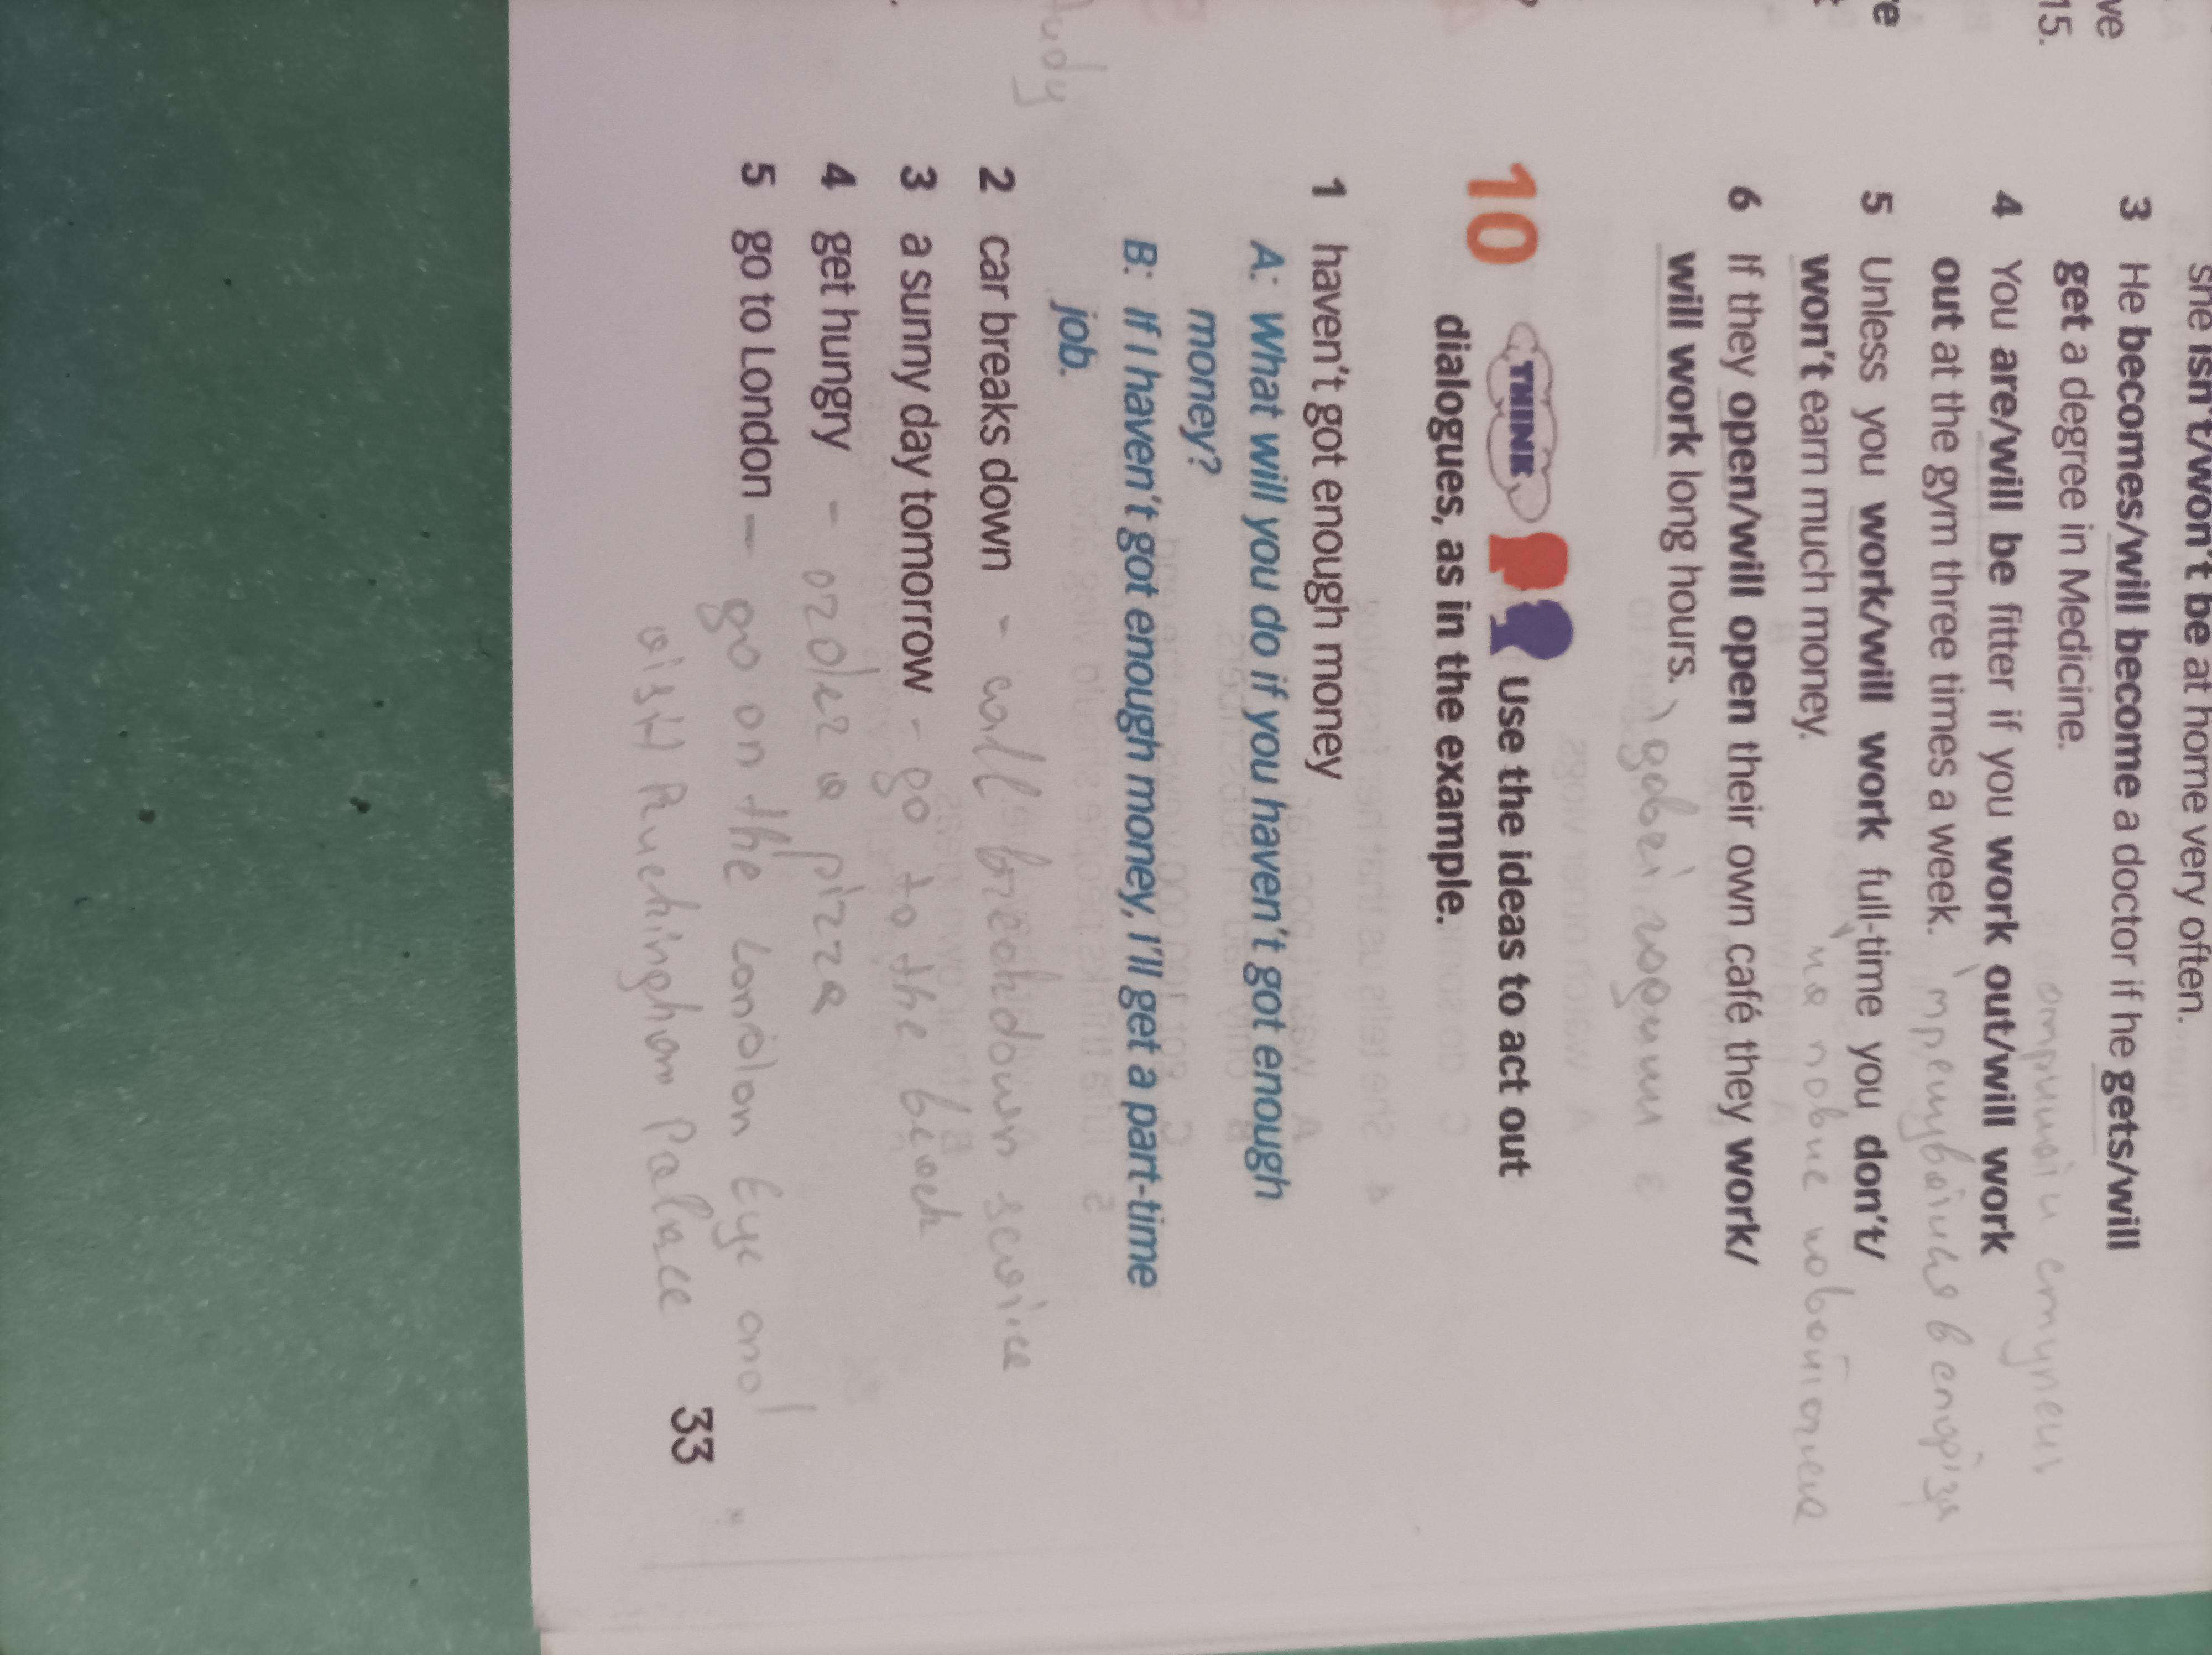 ve
15.
re
she isn't/won't be at home very often.
3 He becomes/will become a doctor if he gets/will
get a degree in Medicine.
4 You are/will be fitter if you work out/will work
out at the gym three times a week.
5 Unless you work/will work full-time you don't/
won't earn much money.
6 If they open/will open their own café they work/
will work long hours.
10 THINK Use the ideas to act out
dialogues, as in the example.
1 haven't got enough money
A: What will you do if you haven't got enough
money?
B: If I haven't got enough money, I'll get a part-time
job.
2 car breaks down - call breakdown service
3 a sunny day tomorrow - go to the beach
4 get hungry - order a pizza
5 go to London - go on the London Eye and
visit Buckingham Palace
33